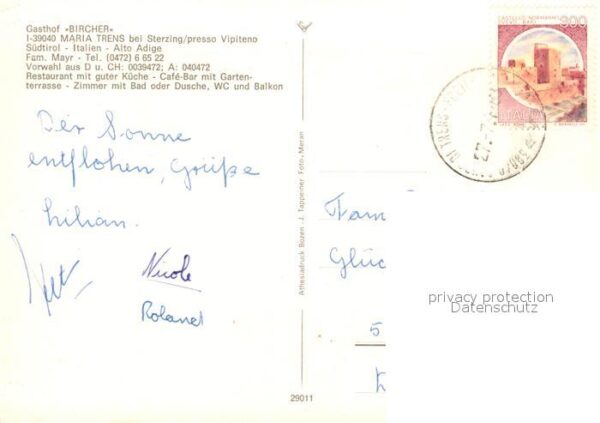 Gasthof «BIRCHER"
I-39040 MARIA TRENS bei Sterzing/presso Vipiteno
Südtirol - Italien - Alto Adige
Fam. Mayr - Tel. (0472) 6 65 22
Vorwahl aus D u. CH: 0039472; A: 040472
Restaurant mit guter Küche - Café-Bar mit Garten-
terrasse - Zimmer mit Bad oder Dusche, WC und Balkon
Der Sonne
entflohen, Grüße
Lilian.
Nicole
Roland
Athesiadruck Bozen - J. Tappeiner Foto, Meran
29011
300
ITALIA
Fam
Glüc
5
privacy protection
Datenschutz